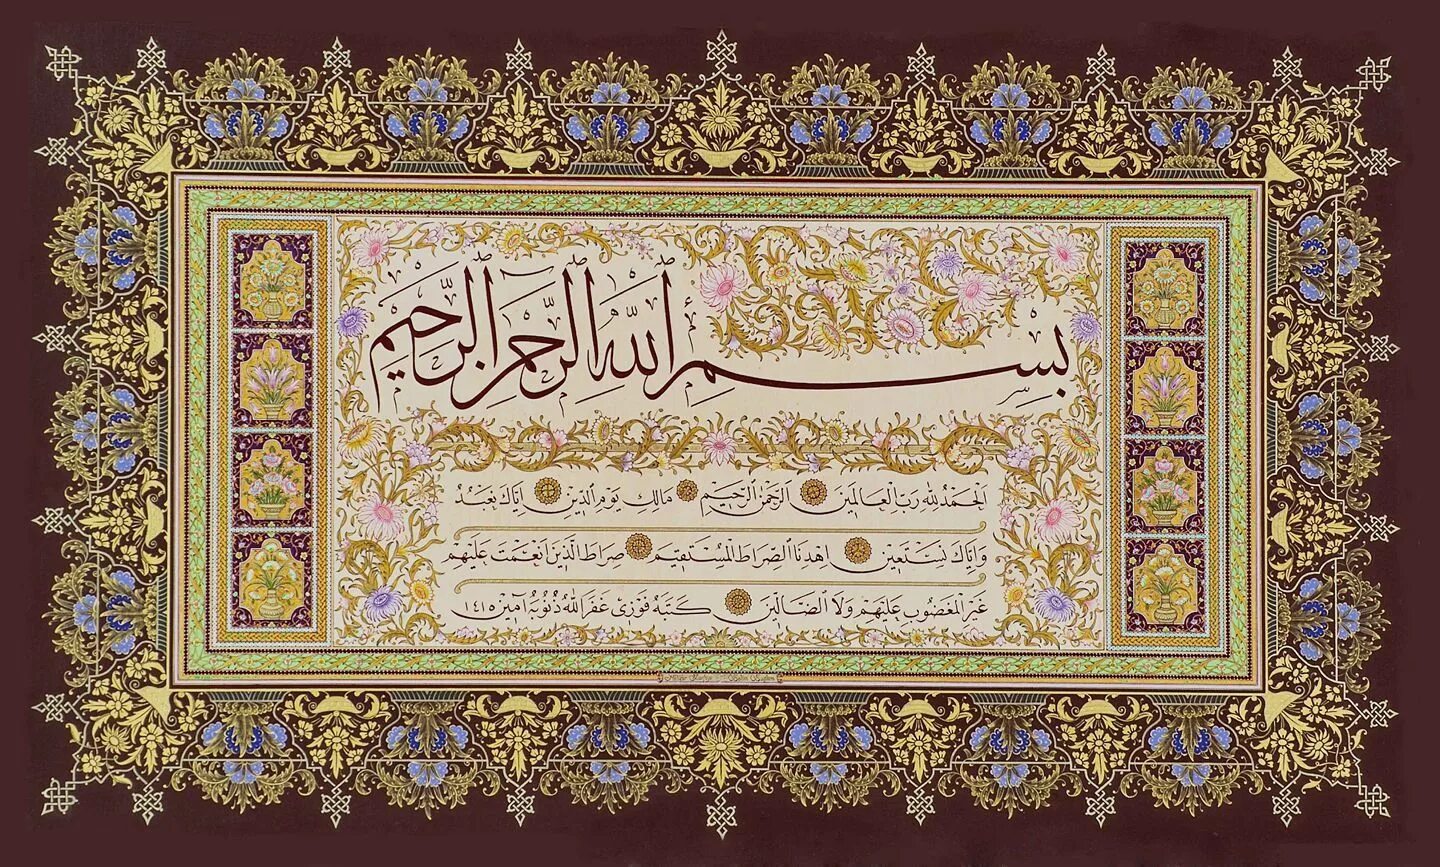 بِسْمِ اللّٰهِ الرَّحْمٰنِ الرَّحِيمِ
اَلْحَمْدُ لِلّٰهِ رَبِّ الْعَالَمِينَ الرَّحْمٰنِ الرَّحِيمِ مَالِكِ يَوْمِ الدِّينِ اِيَّاكَ نَعْبُدُ
وَاِيَّاكَ نَسْتَعِينُ اِهْدِنَا الصِّرَاطَ الْمُسْتَقِيمَ صِرَاطَ الَّذِينَ اَنْعَمْتَ عَلَيْهِمْ
غَيْرِ الْمَغْضُوبِ عَلَيْهِمْ وَلَا الضَّالِّينَ كَتَبَهُ فَوْزِى غَفَرَ اللّٰهُ ذُنُوبَهُ آمِينَ ١٤١٥